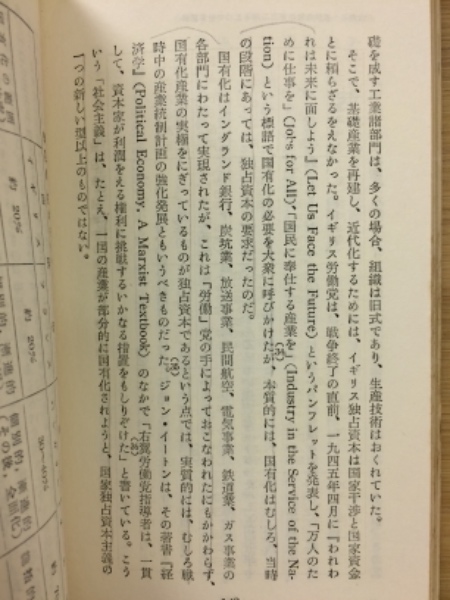 礎を成す工業諸部門は、多くの場合、組織は旧式であり、生産技術はおくれていた。
そこで、基礎産業を再建し、近代化するためには、イギリス独占資本は国家干渉と国家資金
とに頼らざるをえなかった。イギリス労働党は、戦争終了の直前、一九四五年四月に『われわ
れは未来に面しよう』(Let Us Face the Future)というパンフレットを発表し、「万人のた
めに仕事を」(Jobs for All)、「国民に奉仕する産業を」(Industry in the Service of the Na-
tion)という標語で国有化の必要を大衆に呼びかけたが、本質的には、国有化はむしろ、当時
の段階にあっては、独占資本の要求だったのだ。
国有化はイングランド銀行、炭坑業、放送事業、民間航空、電気事業、鉄道業、ガス事業の
各部門にわたって実現されたが、これは「労働」党の手によっておこなわれたにもかかわらず、
国有化産業の実権をにぎっているものが独占資本であるという点では、実質的には、むしろ戦
時中の産業統制計画の強化発展ともいうべきものだった。ジョン・イートンは、その著書『経
済学』(Political Economy, A Marxist Textbook)のなかで「右翼労働党指導者は、一貫
して、資本家が利潤をえる権利に挑戦するいかなる措置をもしりぞけた」と書いている。こう
いう「社会主義」は、たとえ、一国の産業が部分的に国有化されようと、国家独占資本主義の
一つの新しい型以上のものではない。